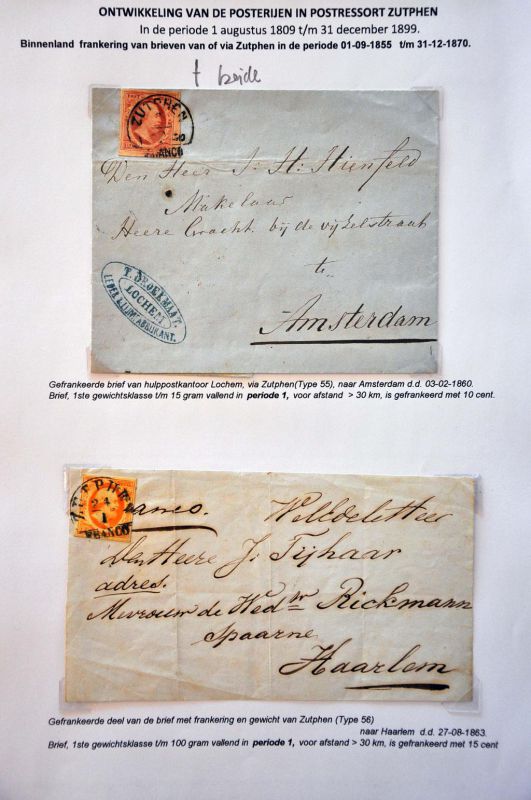 ONTWIKKELING VAN DE POSTERIJEN IN POSTRESSORT ZUTPHEN
In de periode 1 augustus 1809 t/m 31 december 1899.
Binnenland frankering van brieven van of via Zutphen in de periode 01-09-1855 t/m 31-12-1870.
t beide
ZUTPHEN
FRANCO
Den Heer J. H. Hienfeld
Makelaar
Heere Gracht bij de vijzelstraat
te
Amsterdam
LOCHEM
Gefrankeerde brief van hulppostkantoor Lochem, via Zutphen(Type 55), naar Amsterdam d.d. 03-02-1860.
Brief, 1ste gewichtsklasse t/m 15 gram vallend in periode 1, voor afstand > 30 km, is gefrankeerd met 10 cent.
ZUTPHEN
24
1
FRANCO
Franco. WelEdeleHeer
Den Heere J: Tijhaar
adres.
Mevrouw de Wed. Rickmann
Spaarne
Haarlem
Gefrankeerde deel van de brief met frankering en gewicht van Zutphen (Type 56)
naar Haarlem d.d. 27-08-1863.
Brief, 1ste gewichtsklasse t/m 100 gram vallend in periode 1, voor afstand > 30 km, is gefrankeerd met 15 cent